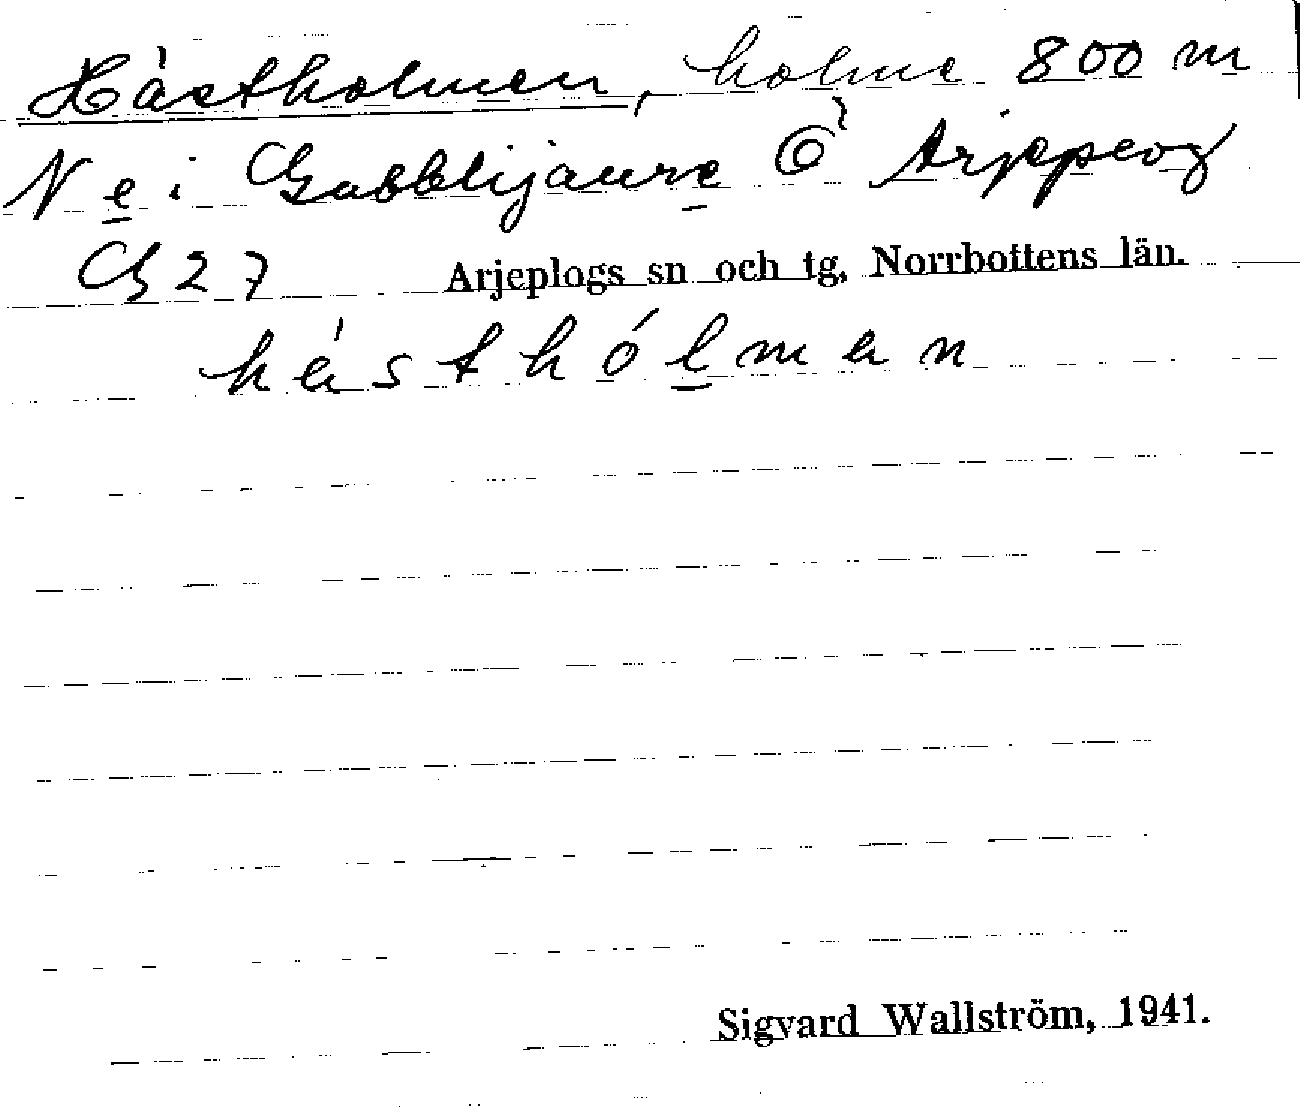 Hästholmen, holme 800 m
N e i Gabblijaure Ö Arjeplog
G 2 7 Arjeplogs sn och tg, Norrbottens län.
hästhólman
Sigvard Wallström, 1941.